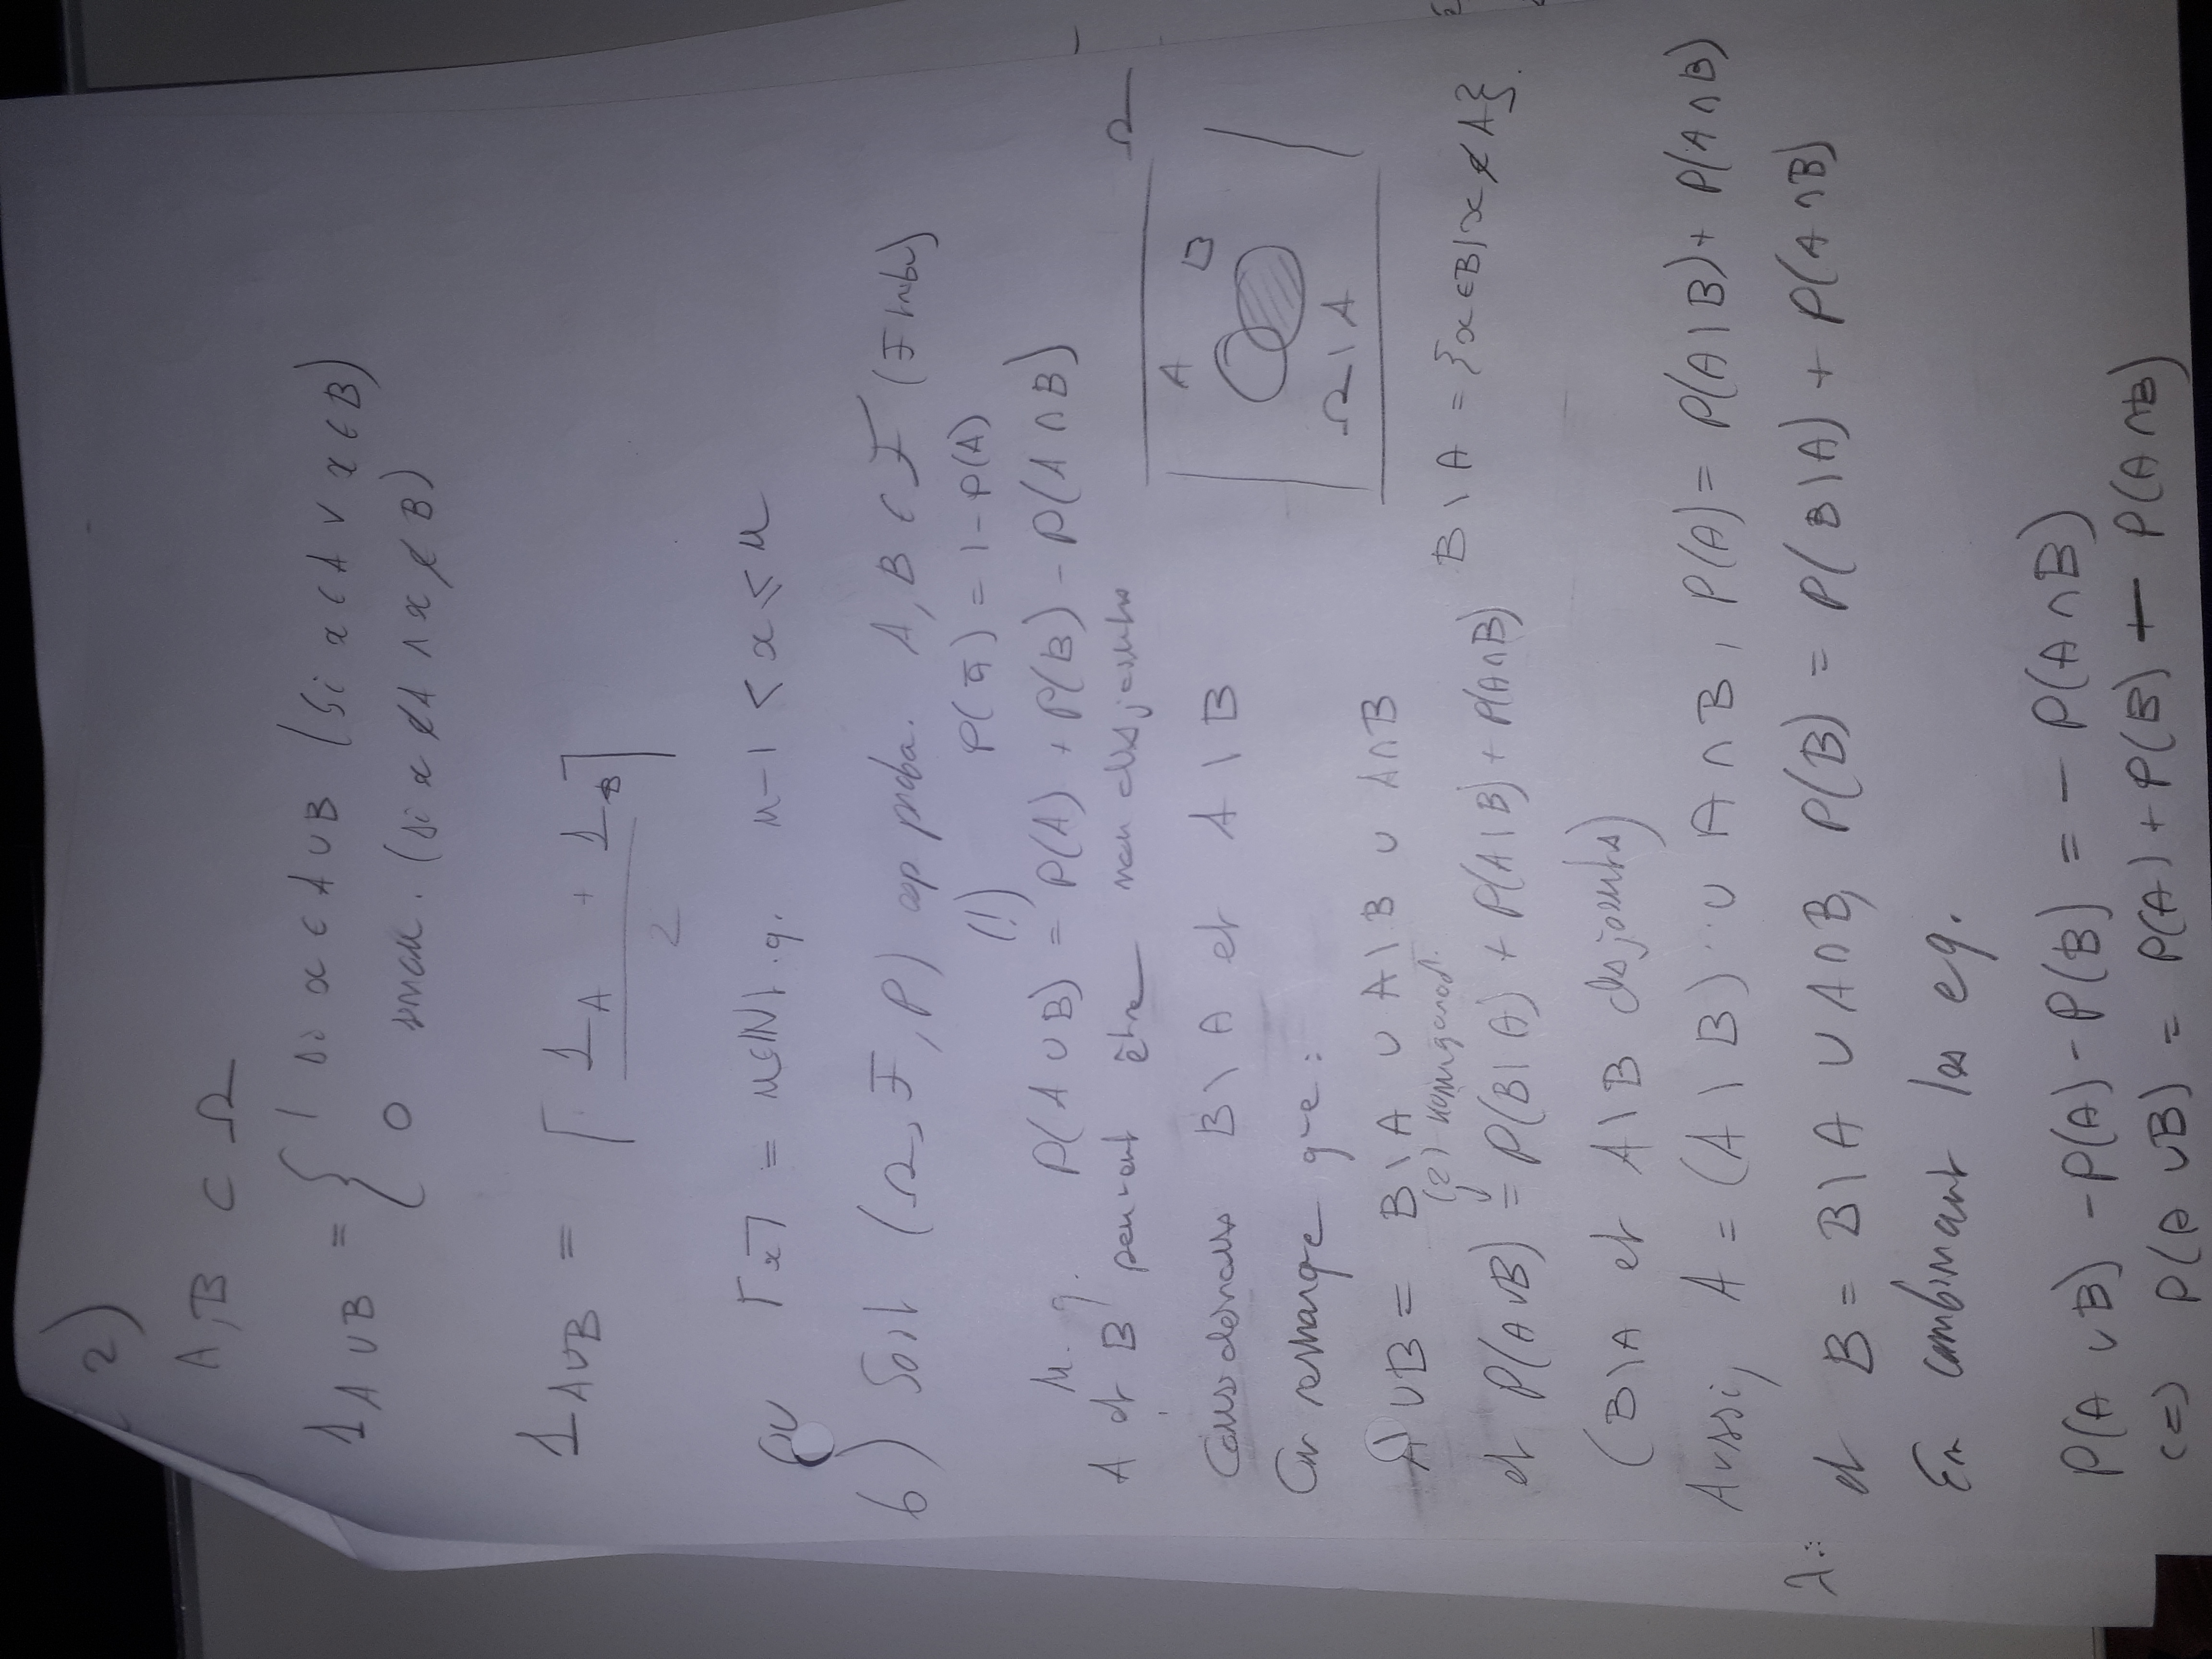 2)
A, B ⊂ Ω
1_{A ∪ B} = { 1 si x ∈ A ∪ B (si x ∈ A ∨ x ∈ B)
0 sinon. (si x ∉ A ∧ x ∉ B)
1_{A∪B} = ⌈ (1_A + 1_B) / 2 ⌉
où ⌈x⌉ = n∈ℕ t.q. n-1 < x ≤ n
6) Soit (Ω, F, P) esp proba. A, B ∈ F (F tribu)
(!) P(Ā) = 1 - P(A)
M. q. P(A ∪ B) = P(A) + P(B) - P(A ∩ B)
A et B peuvent être non disjoints
Ω
A B
Ω \ A
Considérons B \ A et A \ B
On remarque que :
A ∪ B = B \ A ∪ A \ B ∪ A∩B
(2)
B \ A = {x ∈ B | x ∉ A}.
et P(A∪B) = P(B \ A) + P(A \ B) + P(A∩B)
(B\A et A\B disjoints)
Aussi, A = (A \ B) ∪ A ∩ B, P(A) = P(A \ B) + P(A ∩ B)
et B = B \ A ∪ A∩B, P(B) = P(B \ A) + P(A ∩ B)
En combinant les eq.
P(A ∪ B) - P(A) - P(B) = - P(A ∩ B)
(=) P(A ∪ B) = P(A) + P(B) - P(A ∩ B)